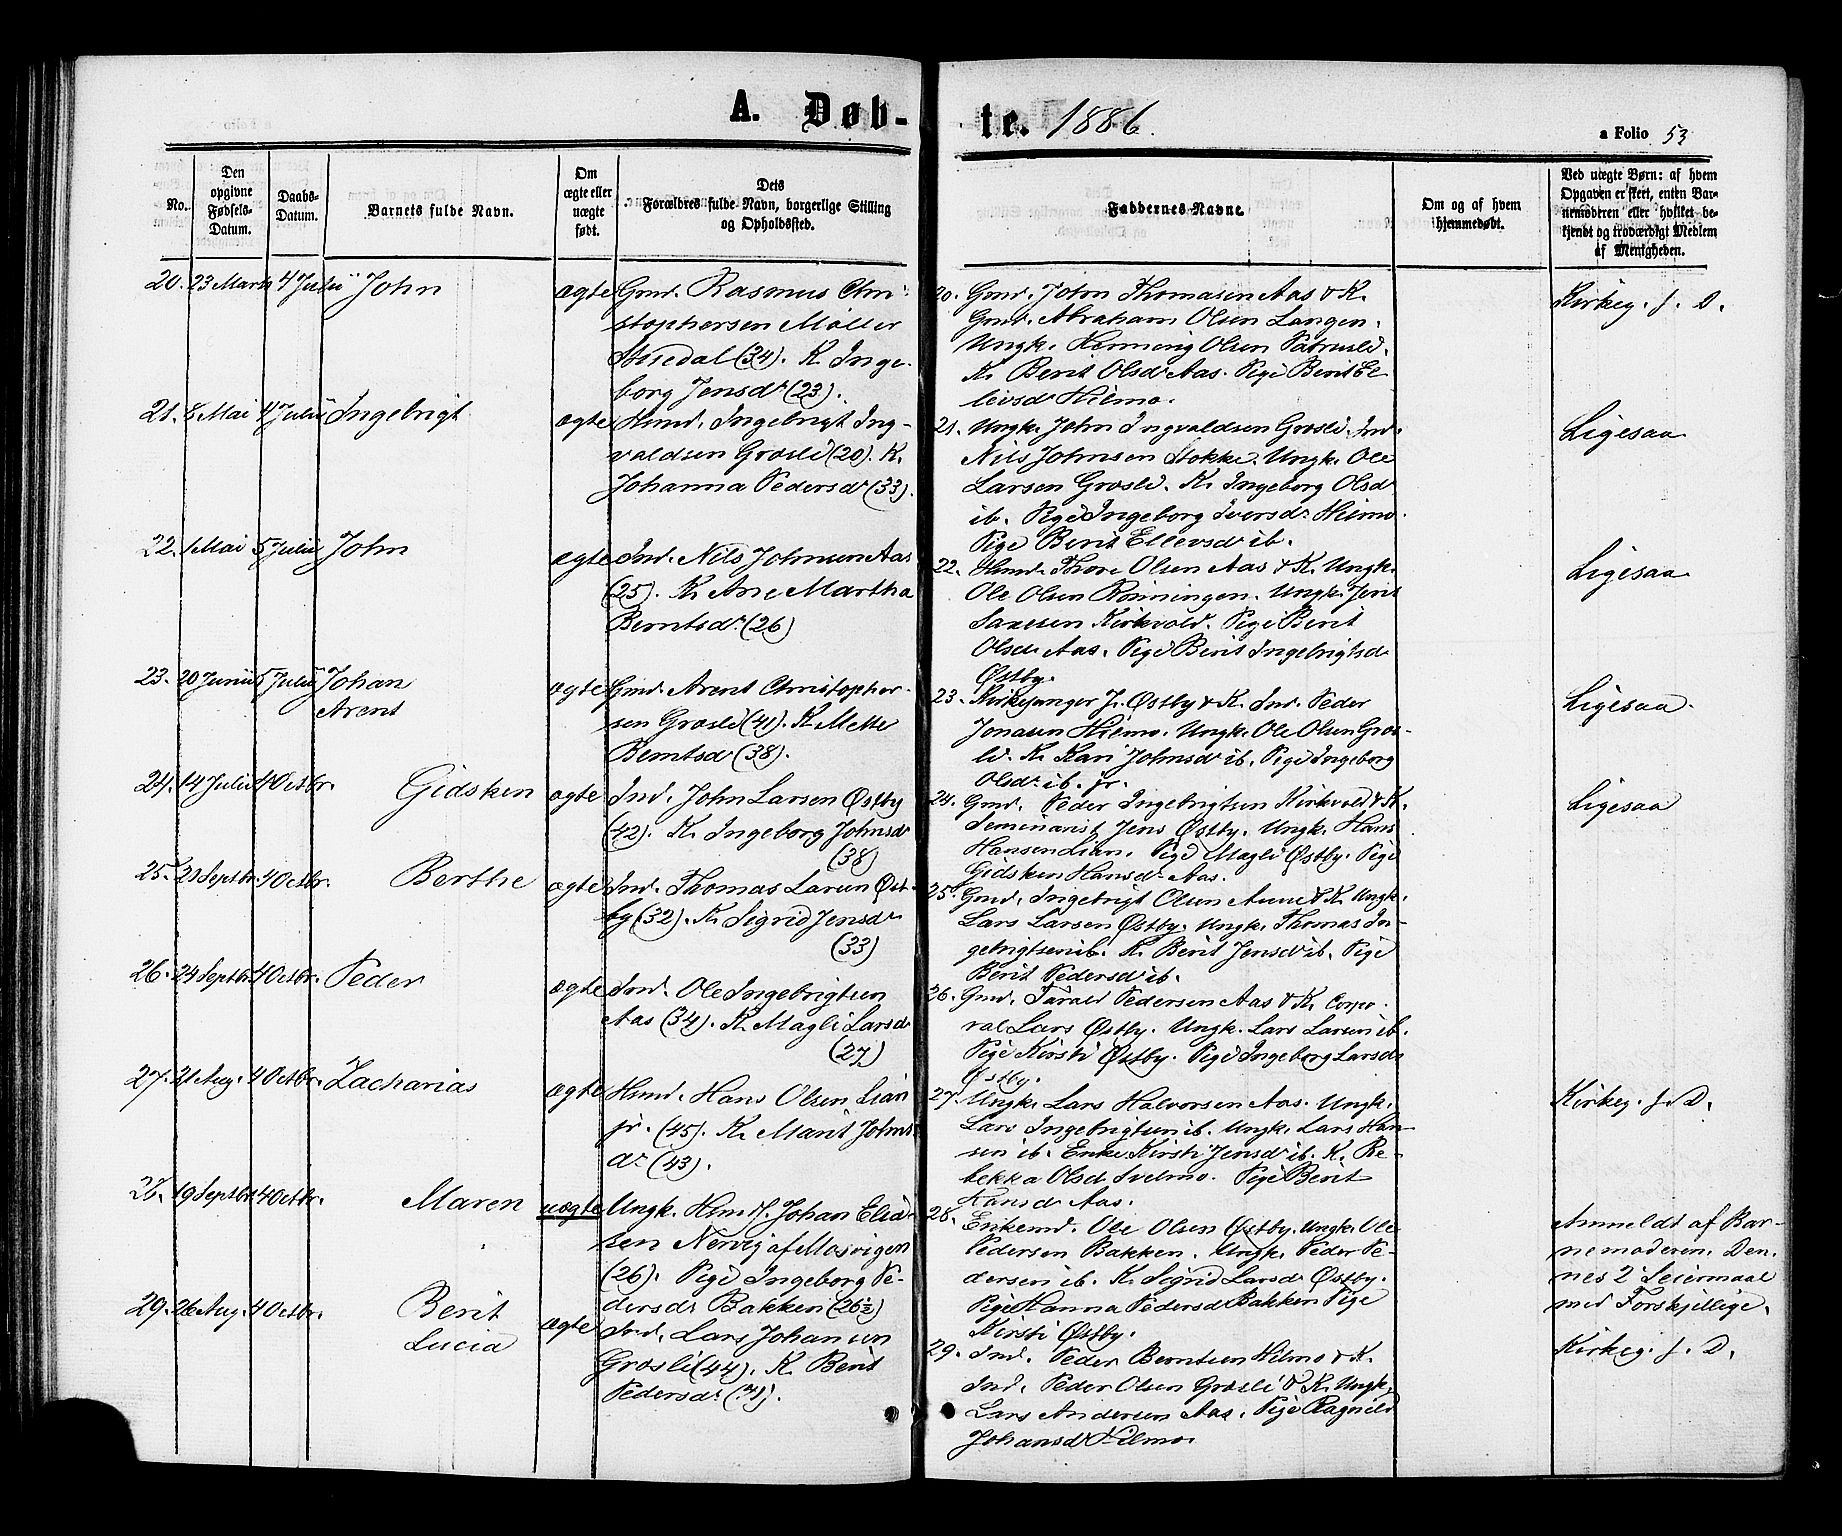 A. Døb-te. 1886.
a Folio 53
No.
Den opgivne Fødsels-Datum.
Daabs-Datum.
Barnets fulde Navn.
Om ægte eller uægte født.
Dets Forældres fulde Navn, borgerlige Stilling og Opholdssted.
Faddernes Navne.
Om og af hvem hjemmedøbt.
Ved uægte Børn: af hvem Opgaven er skeet, enten Barnemoderen eller hvilket bekjendt og troværdigt Medlem af Menigheden.
20. 23 Marts 4 Julii John
ægte Gmd. Rasmus Chri-
stophersen Møller
(34). K. Inge-
borg Jensdr (23).
20. Gmd. John Thomasen Aas & K.
Gmd. Abraham Olsen Langen.
Ungk. Henning Olsen
K. Berit Olsdr Aas. Pige Berit El-
levsd Hilmo.
Kirkeg. s. D.
21. 8 Mai 4 Julii Ingebrigt
ægte Hsmd. Ingebrigt Ing-
valdsen Græsli (20). K.
Johanna Pedersdr (33).
21. Ungk. John Ingvaldsen Græsli. Ind.
Nils Johnsen Stokke. Ungk. Ole
Larsen Græsli. K. Ingeborg Olsd
ib. Pige Ingeborg Iversdr Hilmo.
Pige Berit Ellevsd ib.
Ligesaa
22. 1 Mai 5 Julii John
ægte Ind. Nils Johnsen Aas
(25). K. Ane Martha
Berntsdr (26)
22. Hsmd. Thore Olsen Aas & K. Ungk.
Ole Olsen Rønningen. Ungk. Jens
Larsen Kirkvold. Pige Berit
Olsd. Aas. Pige Berit Ingebrigtsd
Østby.
Ligesaa
23. 20 Junii 5 Julii Johan
Arent
ægte Gmd. Arent Christopher-
sen Græsli (41). K. Mette
Berntsd (38).
23. Kirkesanger J. Østby & K. Ind. Peder
Jonasen Hilmo. Ungk. Ole Olsen Græs-
li. K. Kari Johnsd ib. Pige Ingeborg
Olsdr ib. jr.
Ligesaa.
24. 14 Julii 4 Octbr. Gidsken
ægte Ind. John Larsen Østby
(42). K. Ingeborg Johnsdr
(38)
24. Gmd. Peder Ingebrigtsen Kirkvold & K.
Seminarist Jens Østby. Ungk. Hans
Hansen Lian. Pige Magli Østby. Pige
Gidsken Hansdr Aas.
Ligesaa
25. 21 Septbr. 4 Octbr. Berthe
ægte Ind. Thomas Larsen Øst-
by (32). K. Sigrid Jensdr
(33)
25. Gmd. Ingebrigt Olsen Aune & K. Ungk.
Lars Larsen Østby. Ungk. Thomas In-
gebrigtsen ib. K. Berit Jensd ib. Pige
Berit Pedersd ib.
26. 24 Septbr. 4 Octbr. Peder
ægte Ind. Ole Ingebrigtsen
Aas (34). K. Magli Larsd
(27)
26. Gmd. Tarald Pedersen Aas & K. Corpo-
ral Lars Østby. Ungk. Lars Larsen ib.
Pige Kirsti Østby. Pige Ingeborg Larsdr
Østby.
27. 21 Aug. 4 Octbr. Zacharias
ægte Hsmd. Hans Olsen Lian
jr. (45). K. Marit Johns-
dr (43).
27. Ungk. Lars Halvorsen Aas. Ungk.
Lars Ingebrigtsen ib. Ungk. Lars Han-
sen ib. Enke Kirsti Jensd ib. K. Re-
bekka Olsd Svelmo. Pige Berit
Hansdr Aas.
Kirkeg. s. D.
28. 19 Septbr. 4 Octbr. Maren
uægte Ungk. Johan Elia-
sen Nervig af Mosvigen
(26). Pige Ingeborg Pe-
dersdr Bakken (26½)
28. Enkemd. Ole Olsen Østby. Ungk. Ole
Pedersen Bakken. Ungk. Peder Pe-
dersen ib. K. Sigrid Larsdr Østby.
Pige Hanna Pedersdr Bakken Pige
Kirsti Østby.
Anmeldt af Bar-
nemoderen. Den-
nes 2 Leiermaal
med Forskjellige.
29. 26 Aug. 4 Octbr. Berit
Lucia
ægte Ind. Lars Johansen
Græsli (44). K. Berit
Pedersdr (41).
29. Ind. Peder Berntsen Hilmo & K.
Ind. Peder Olsen Græsli & K. Ungk.
Lars Andersen Aas. Pige Ragnild
Johansd Hilmo.
Kirkeg. s. D.